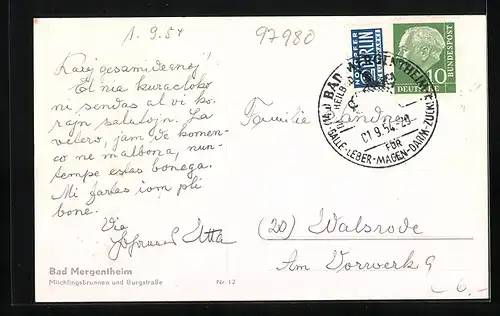 1.9.54
97980
Karaj gesamideanoj
El nia kuracloko
ni sendas al vi ko-
rajn salutojn. La
vetero, jam de komen-
co ne malbona, nun-
tempe estas bonega.
Mi fartas iom pli
bone.
Via
Johannes
NOTOPFER
BERLIN
STEUERMARKE
DEUTSCHE
BUNDESPOST
10
BAD MERGENTHEIM
01.9.54
FÜR
GALLE-LEBER-MAGEN-DARM-ZUCKER
Familie
(20) Walsrode
Am Vorwerk 9
Bad Mergentheim
Milchlingsbrunnen und Burgstraße Nr. 12
6.-